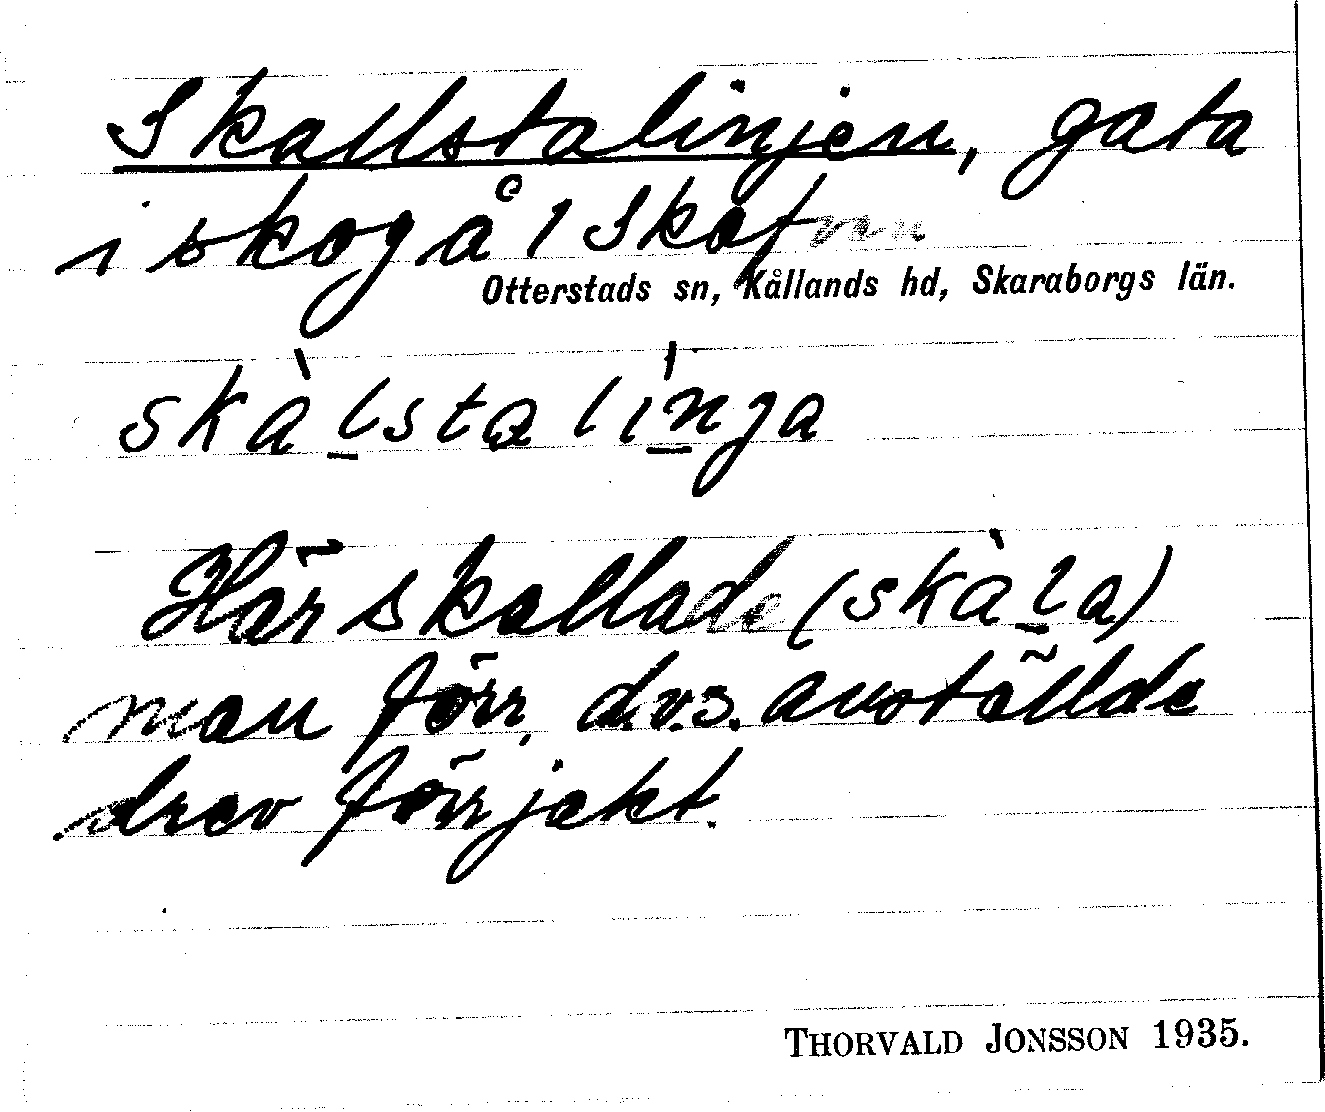 Skallstalinjen, gata
i skog å 1 Skof
Otterstads sn, Kållands hd, Skaraborgs län.
skàl̲stalin̲ga
Här skallade (skàl̲a)
man förr, d.v.s. avställde
drev förr jakt.
THORVALD JONSSON 1935.